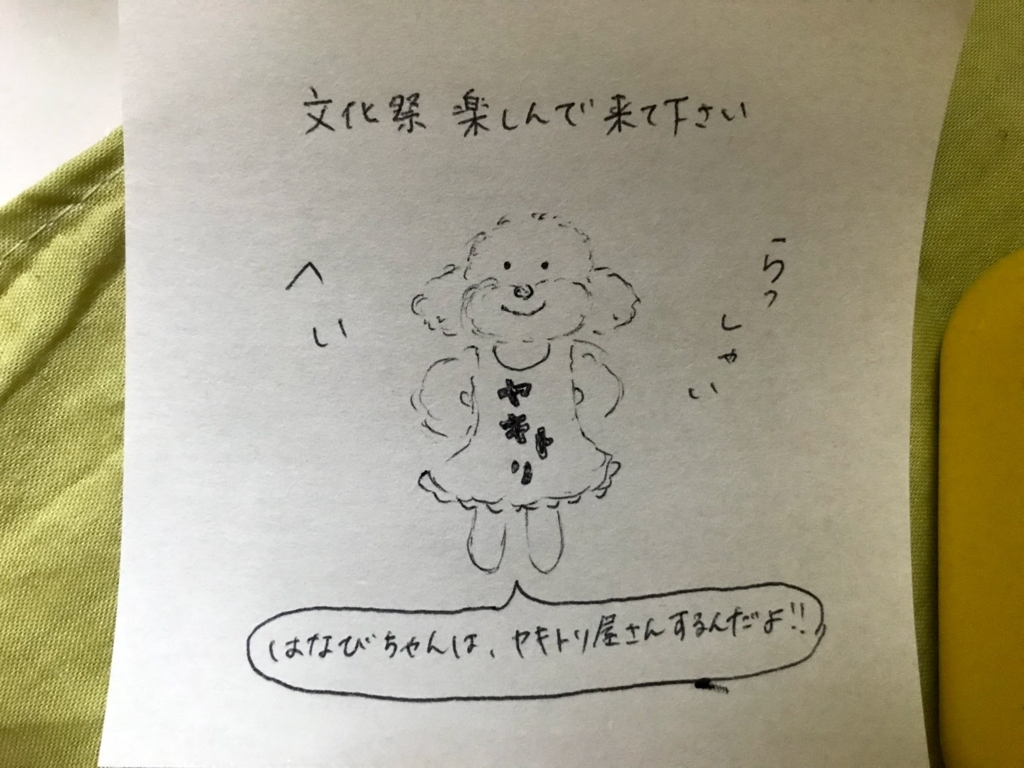 文化祭 楽しんで来て下さい
へい
らっしゃい
ヤキトリ
はなびちゃんは、ヤキトリ屋さんするんだよ!!